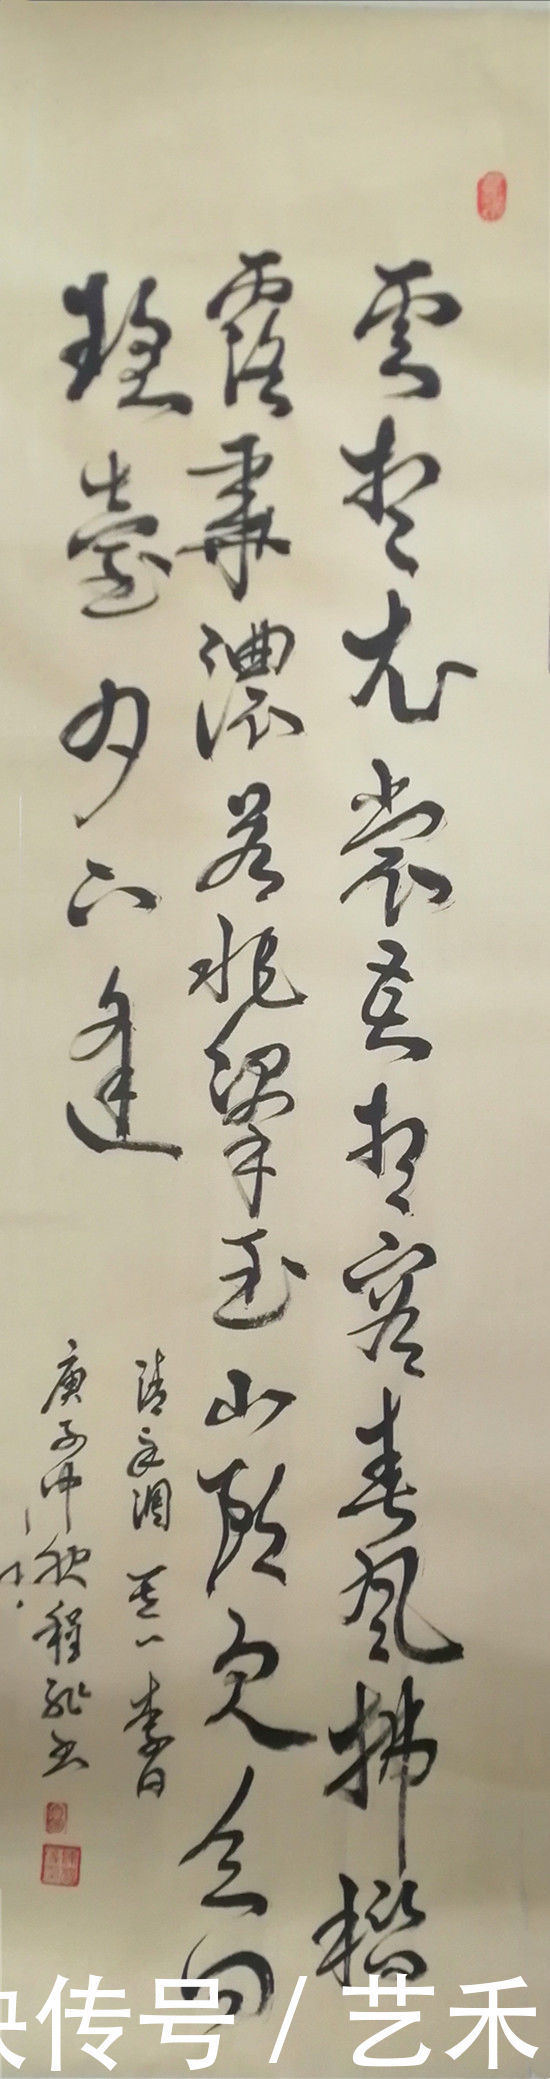 雲想衣裳花想容春風拂檻
露華濃若非群玉山頭見会向
瑶臺月下逢
清平调其一李白
庚子仲秋程书
快传号 / 艺禾